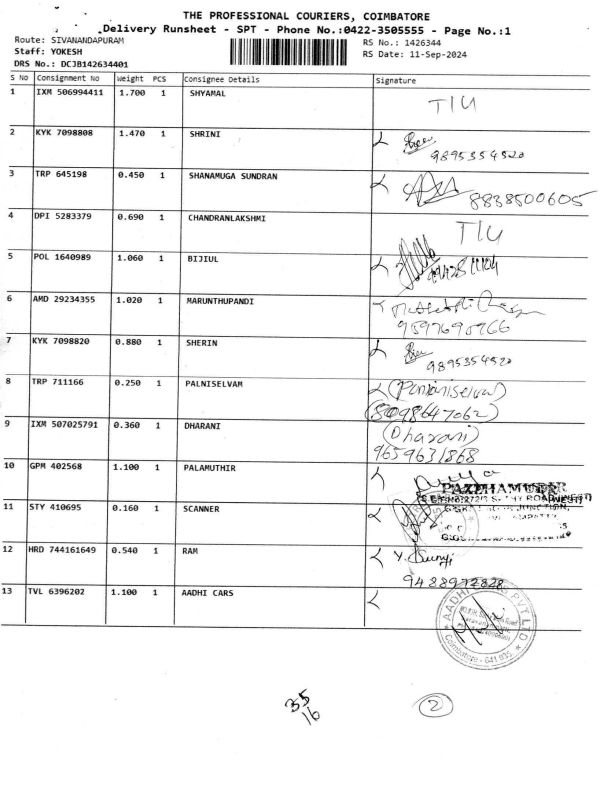 THE PROFESSIONAL COURIERS, COIMBATORE
Delivery Runsheet - SPT - Phone No.:0422-3505555 - Page No.:1
Route: SIVANANDAPURAM RS No.: 1426344
Staff: YOKESH RS Date: 11-Sep-2024
DRS No.: DCJB142634401
S No Consignment No Weight PCS Consignee Details Signature
1 IXM 506994411 1.700 1 SHYAMAL TIU
2 KYK 7098808 1.470 1 SHRINI
9895354520
3 TRP 645198 0.450 1 SHANAMUGA SUNDRAN
8838500605
4 DPI 5283379 0.690 1 CHANDRANLAKSHMI TIU
5 POL 1640989 1.060 1 BIJIUL
6 AMD 29234355 1.020 1 MARUNTHUPANDI
7 KYK 7098820 0.880 1 SHERIN
9895354520
8 TRP 711166 0.250 1 PALNISELVAM
8098647062
9 IXM 507025791 0.360 1 DHARANI (Dharani)
9659631868
10 GPM 402568 1.100 1 PALAMUTHIR
11 STY 410695 0.160 1 SCANNER
12 HRD 744161649 0.540 1 RAM
9488972828
13 TVL 6396202 1.100 1 AADHI CARS
Coimbatore - 641 035
35
16
2